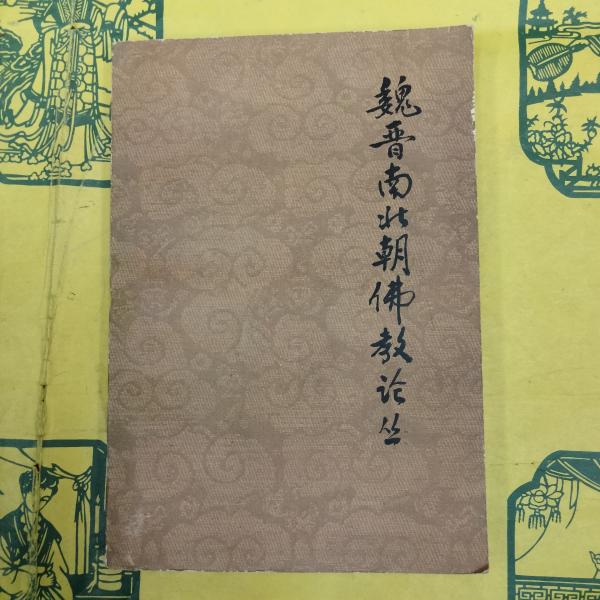 魏晋南北朝佛教论丛